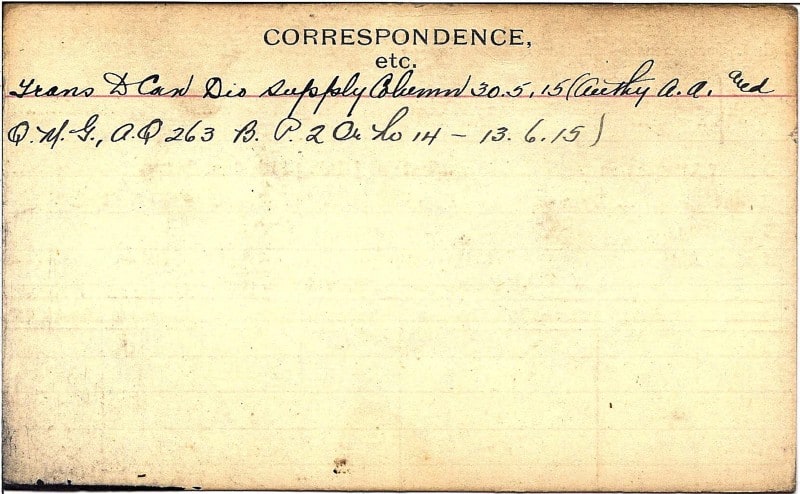 CORRESPONDENCE,
etc.
Trans D Can Div Supply Column 30.5.15 (Authy A.A. and
Q.M.G., A.Q 263 B. P. 2 Or No 14 - 13.6.15)